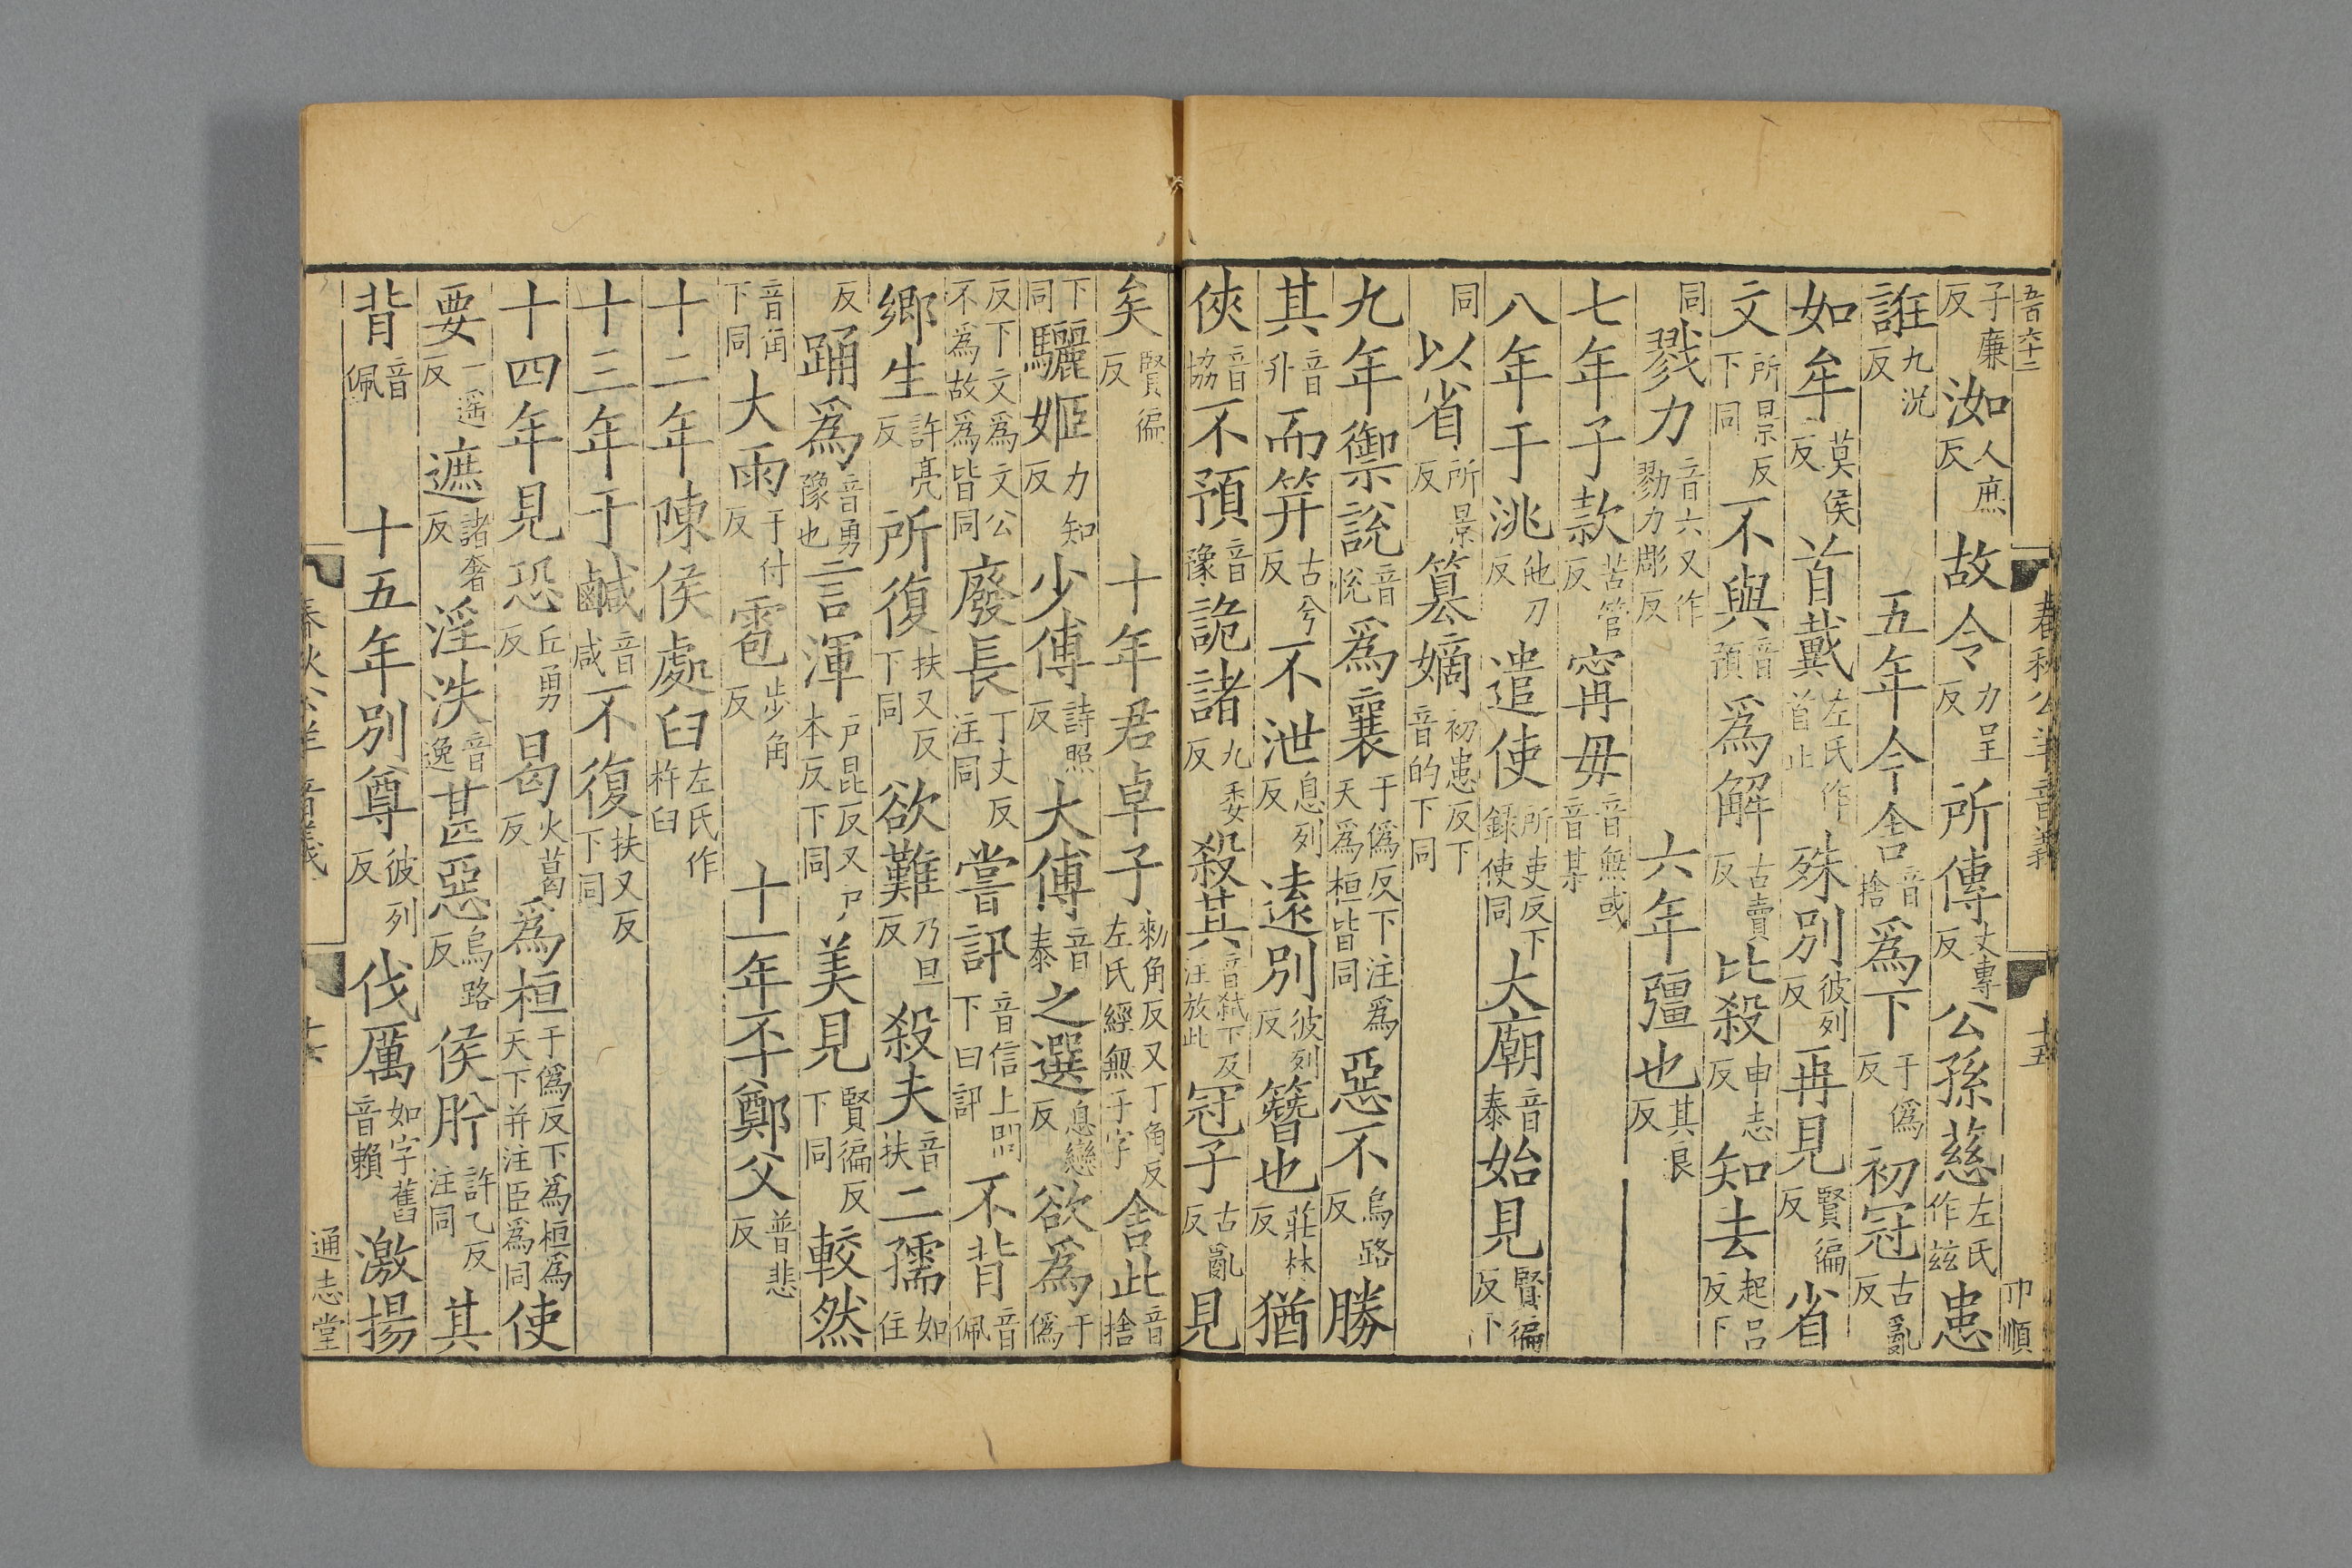 五百六十二 春秋公羊音義 十五 巾順
子廉反 汝人庶反 故令力呈反 所傳丈專反 公孫慈左氏作兹 患
誑九況反 五年今舍音捨 爲下于僞反 初冠古亂反
如牟莫侯反 首戴左氏作首止 殊別彼列反 再見賢徧反 省
文所景反下同 不與音預 爲解古賣反 比殺申志反 知去起呂反下
同 戮力音六又作勠力彫反 六年彊也其良反
七年子款苦管反 甯毋音無或音某
八年于洮他刀反 遣使所吏反下錄使同 大廟音泰 始見賢徧反下
同 以省所景反 篡嫡初患反下音的下同
九年禦說音悅 爲襄于僞反下注爲天爲桓皆同 惡不烏路反 勝
其音升 而笄古兮反 不泄息列反 遠別彼列反 簪也莊林反 猶
俠音協 不預音豫 詭諸九委反 殺其音弒下及注放此 冠子古亂反 見
矣賢徧反 十年君卓子勑角反又丁角反左氏經無子字 舍此音捨
下同 驪姬力知反 少傅詩照反 大傅音泰 之選息戀反 欲爲于僞
反下文爲文公不爲故爲皆同 廢長丁丈反注同 嘗訊音信上問下曰訊 不背音佩
鄉生許亮反 所復扶又反下同 欲難乃旦反 殺夫音扶 二孺如住
反 踊爲音勇豫也 言渾戶昆反又戶本反下同 美見賢徧反下同 較然
音角下同 大雨于付反 雹步角反 十一年㔻鄭父普悲反
十二年陳侯處臼左氏作杵臼
十三年于鹹音咸 不復扶又反下同
十四年見恐丘勇反 曷火葛反 爲桓于僞反下爲桓爲天下并注臣爲同 使
要一遥反 遮諸奢反 淫泆音逸 甚惡烏路反 侯肸許乙反注同 其
背音佩 十五年別尊彼列反 伐厲如字舊音賴 激揚
春秋公羊音義 十六 通志堂